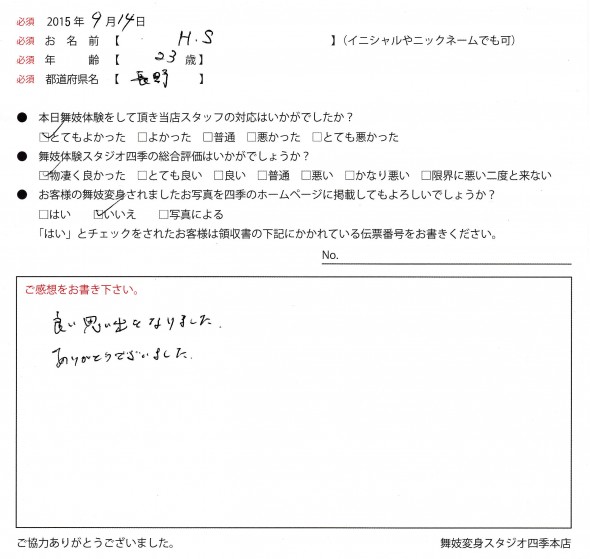 必須 2015年 9月14日
必須 お名前【 H.S 】(イニシャルやニックネームでも可)
必須 年齢【 23歳】
必須 都道府県名【 長野 】
● 本日舞妓体験をして頂き当店スタッフの対応はいかがでしたか?
☑とてもよかった □よかった □普通 □悪かった □とても悪かった
● 舞妓体験スタジオ四季の総合評価はいかがでしょうか?
☑物凄く良かった □とても良い □良い □普通 □悪い □かなり悪い □限界に悪い二度と来ない
● お客様の舞妓変身されましたお写真を四季のホームページに掲載してもよろしいでしょうか?
□はい ☑いいえ □写真による
「はい」とチェックをされたお客様は領収書の下記にかかれている伝票番号をお書きください。
No.
ご感想をお書き下さい。
良い思い出となりました.
ありがとうございました.
ご協力ありがとうございました。 舞妓変身スタジオ四季本店